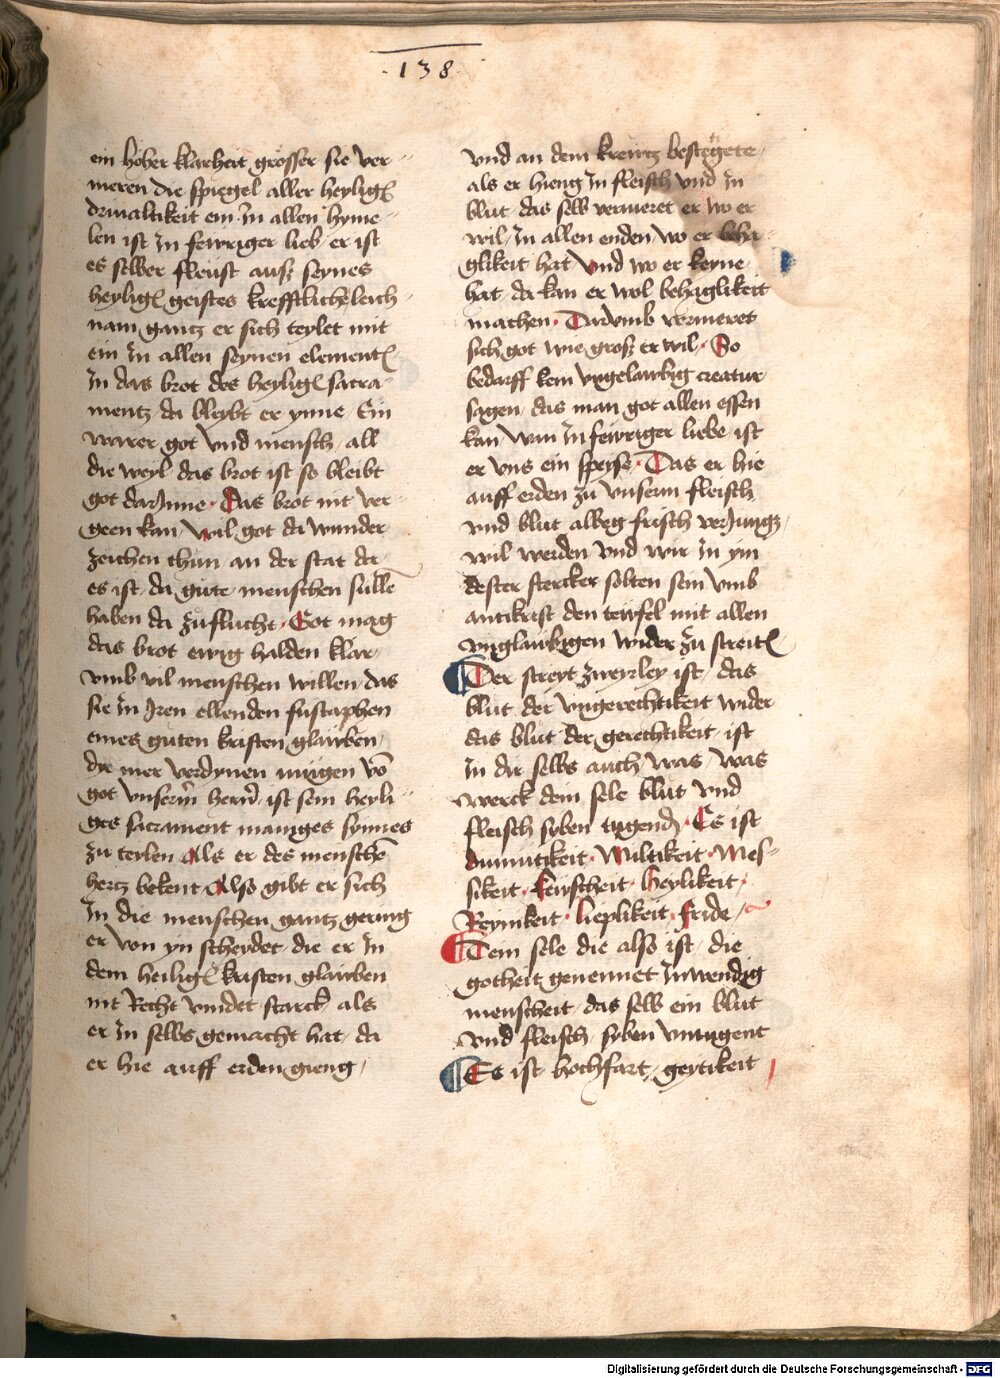 138
ein hoher klarheit grosser sie ver
meren die spiegel aller heylig͞
drinaltikeit ein in allen hyme
len ist in fewriger lieb er ist
es selber fleust auß seynes
heylig͞ geistes krefftliche leich
nam gantz er sich teylet mit
ein in allen seynen element͞
In das brot des heylig͞ sacra
mentz da bleybt er ynne Ein
warer got vnd mensch all
die weyl das brot ist so bleibt
got darJnne Das brot nit ver
geen kan wil got da wunder
zeichen thun an der stat da
es ist da gute menschen sulle͞
haben da zuflucht Got mag
das brot ewig halden klar
vmb vil menschen willen das
sie in Iren ellenden fustaphen
eines guten kristen glawben
dir mer verdynen mugen vo͞
got vnserm hern ist sein heyli
ges sacrament maniges synnes
zu teylen Als er des mensche͞
hertz bekent Also gibt er sich
In die menschen gantz gering
er von yn scheydet die er in
dem heilig͞ kristen glawben
nit Recht vindet starck als
er in selbs gemacht hat da
er hie auff erden gieng
vnd an dem krewtz bestetgete
als er hieng in fleisch vnd in
blut das selb vermeret er wo er
wil in allen enden wo er beha
glikeit hat vnd wo er keyne
hat da kan er wol behaglikeit
machen Darvmb vermeret
sich got wie groß er wil So
bedarff kein vngelawbig creatur
sagen das man got allen essen
kan wan in fewriger liebe ist
er vns ein speyse Das er hie
auff erden zu vnserm fleisch
vnd blut alweg frisch verJungt
wil werden vnd wir in ym
dester stercker solten sein vmb
antikrist den tewfel mit allen
vnglawbigen wider zu streit͞
Der streyt zweyrley ist das
blut der vngerechtikeit wider
das blut der gerechtikeit ist
in dir selbs auch was was
werck dem sele blut vnd
fleisch syben tugend Es ist
dimutikeit Miltikeit Mes
sikeit kewscheit heylikeit
Reynikeit lieplikeit fride
Dein sele die also ist die
gotheit genennet Inwendig
menscheit das selb ein blut
vnd fleisch syben vntugent
Es ist hochfart geytikeit
Digitalisierung gefördert durch die Deutsche Forschungsgemeinschaft - DFG